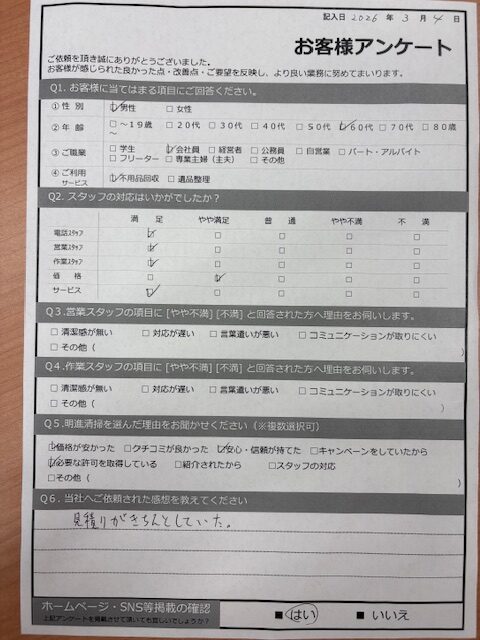 記入日 2026 年 3 月 4 日
お客様アンケート
ご依頼を頂き誠にありがとうございました。
お客様が感じられた良かった点・改善点・ご要望を反映し、より良い業務に努めてまいります。
Q1. お客様に当てはまる項目にご回答ください。
① 性 別 ☑男性 □女性
② 年 齢 □～19歳 □20代 □30代 □40代 □50代 ☑60代 □70代 □80歳～
③ ご職業 □学生 ☑会社員 □経営者 □公務員 □自営業 □パート・アルバイト
□フリーター □専業主婦（主夫） □その他
④ ご利用サービス ☑不用品回収 □遺品整理
Q2. スタッフの対応はいかがでしたか？
満 足 やや満足 普 通 やや不満 不 満
電話ｽﾀｯﾌ ☑ □ □ □ □
営業ｽﾀｯﾌ ☑ □ □ □ □
作業ｽﾀｯﾌ ☑ □ □ □ □
価 格 □ ☑ □ □ □
サービス ☑ □ □ □ □
Q3.営業スタッフの項目に [やや不満] [不満] と回答された方へ理由をお伺いします。
□清潔感が無い □対応が遅い □言葉遣いが悪い □コミュニケーションが取りにくい
□その他（ ）
Q4.作業スタッフの項目に [やや不満] [不満] と回答された方へ理由をお伺いします。
□清潔感が無い □対応が遅い □言葉遣いが悪い □コミュニケーションが取りにくい
□その他（ ）
Q5.明進清掃を選んだ理由をお聞かせください（※複数選択可）
☑価格が安かった □クチコミが良かった ☑安心・信頼が持てた □キャンペーンをしていたから
☑必要な許可を取得している □紹介されたから □スタッフの対応
□その他（ ）
Q6. 当社へご依頼された感想を教えてください
見積りがきちんとしていた。
ホームページ・SNS等掲載の確認
上記アンケートを掲載させて頂いても宜しいでしょうか？
■ はい ■ いいえ